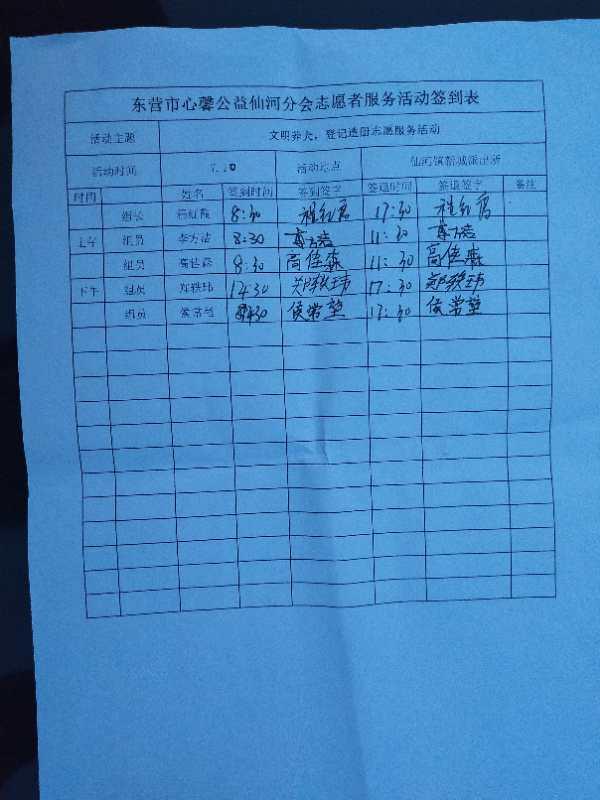 东营市心馨公益仙河分会志愿者服务活动签到表
活动主题 文明养犬，登记造册志愿服务活动
活动时间 7.20 活动地点 仙河镇新城派出所
时间 姓名 签到时间 签到签字 签退时间 签退签字 备注
组长 8:30 17:30
上午 组员 李方洁 8:30 李方洁 11:30 李方洁
组员 高佳淼 8:30 高佳淼 11:30 高佳淼
下午 组员 郑轶玮 14:30 郑轶玮 17:30 郑轶玮
组员 侯常堃 14:30 侯常堃 17:30 侯常堃